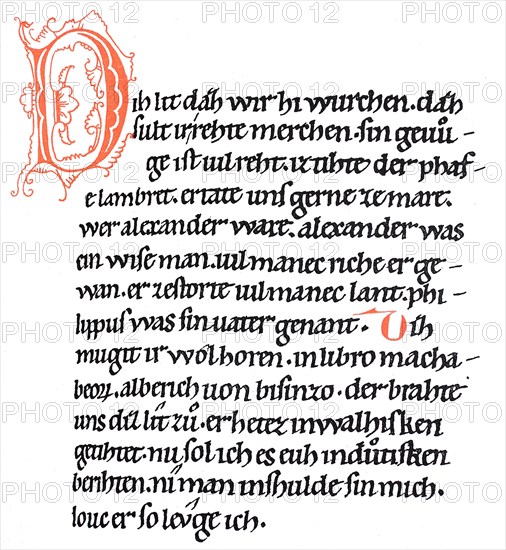 Diz lit daz wir hi wurchen. daz
sult ir rehte merchen. sin gevuͦ–
ge ist uil reht. iz tihte der phaf–
fe lambret. er tate uns gerne ze mare.
wer alexander ware. alexander was
ein wise man. uil manec riche er ge–
wan. er zestorte uil manec lant. phi–
lippus was sin uater genant. Diz
mugit ir wôl horen. in libro macha–
beoꝝ. alberich uon bisinzo. der brahte
uns diz lît zuͦ. er hetez in walhisken
getihtet. nu sol ich es euh in duͦtisken
berihten. nîman inshulde sin mich.
louc er so leuge ich.